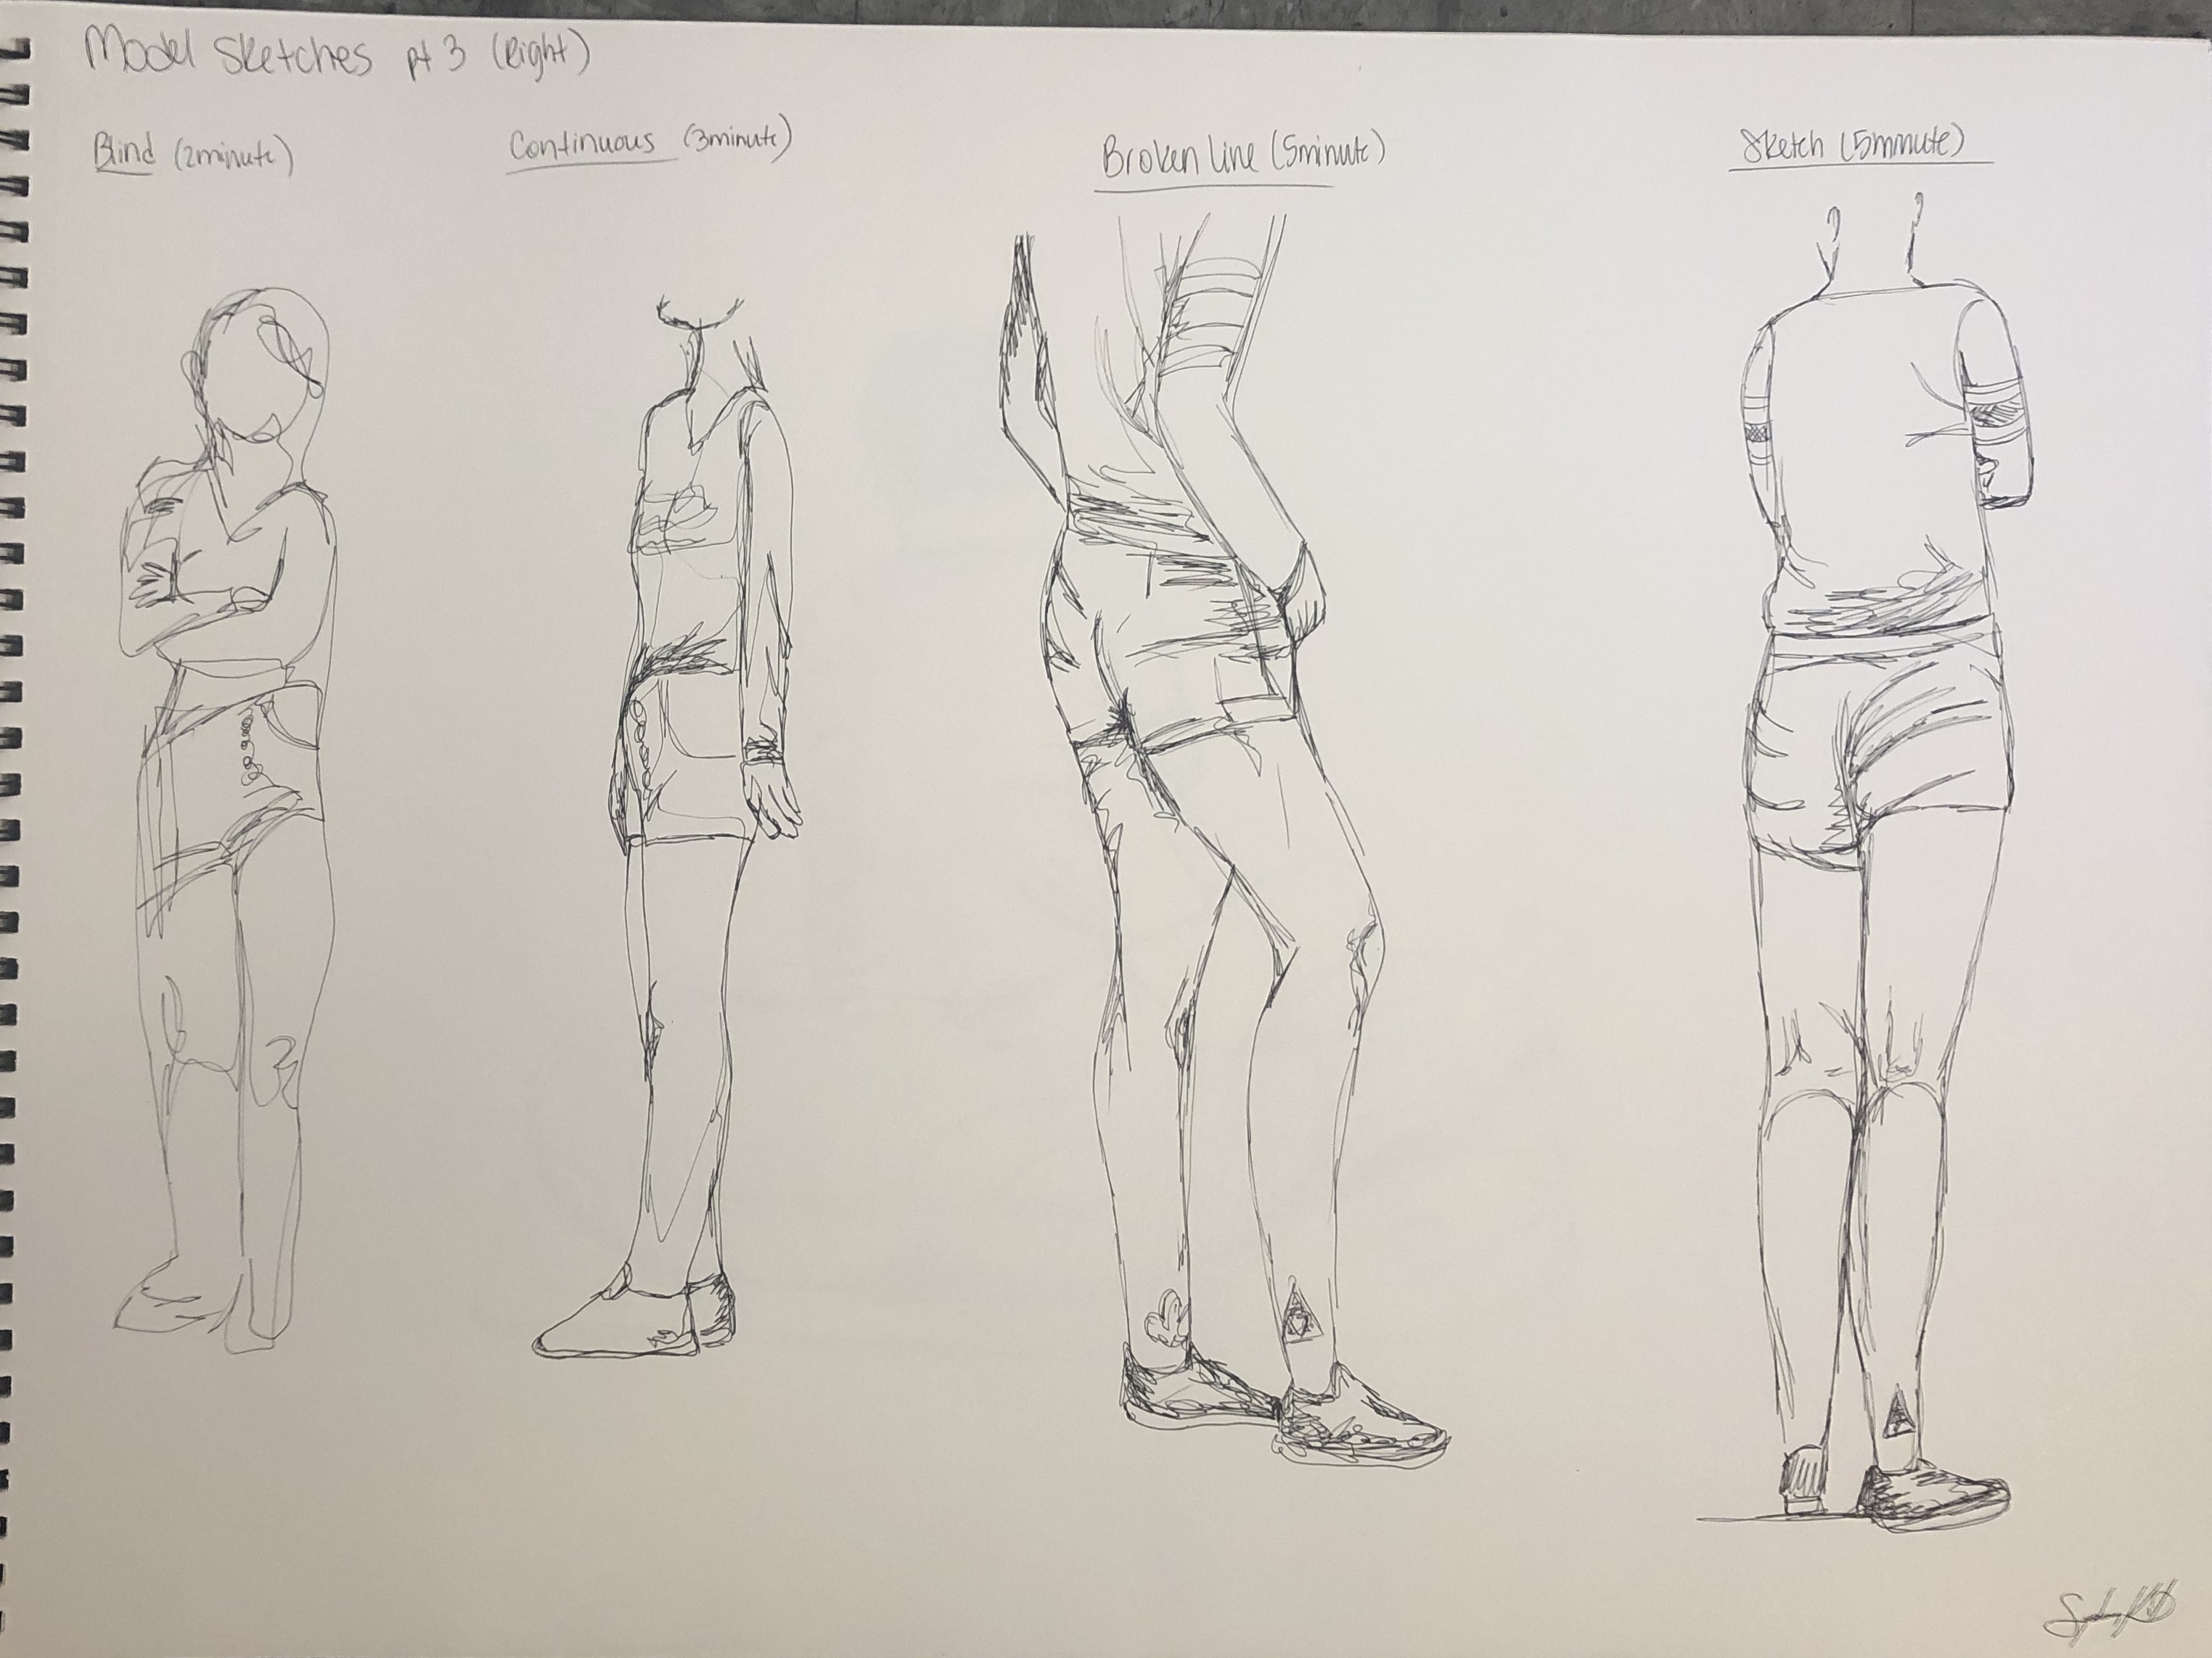 Model Sketches pt 3 (Right)
Blind (2minute)
Continuous (3minute)
Broken Line (5minute)
Sketch (5minute)